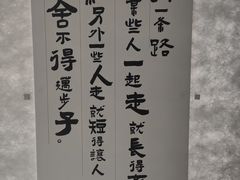 一条路
某些人一起走就長得
另外一些人走就短得讓人
舍不得邁步子。